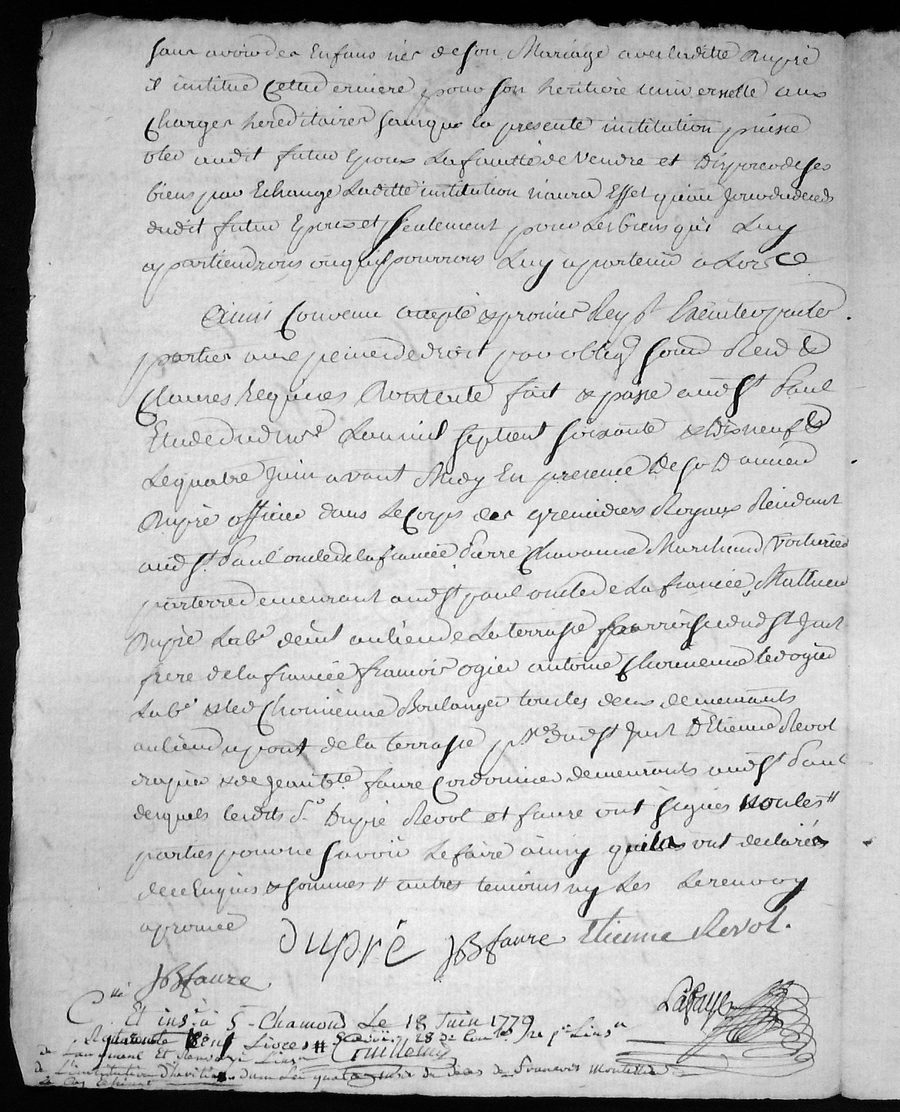 sans avoir des Enfans nés de son Mariage avec laditte Dupré
il institue Cette derniere pour son heritiere universelle aux
Charges hereditaires sans que la presente institution puisse
oter audit futur Epoux La faculté de Vendre et Disposer de ses
biens par Echange Laditte institution n'aura Effet qu'au jour du deces
dudit futur Epoux et seulement pour Les biens qui Luy
apartiendrons ou qui pourrons Luy apartenir alors
Ainsi Convenu accepté & promis Resp.t Executer par les
parties aux peines de droit par oblig soum Rend &
Clauses Requises Contente fait & passé aud St Paul
Etude dud no.re L'an mil sept cent soixante & dix neuf &
Le quatre Juin avant Midy En presence De Sr Damien
Dupré officier dans Le Corps des grenadiers Royaux Residant
aud St Paul oncle de la fiancée Pierre Chavanne Marchand Voiturier
par terre demeurant aud St paul oncle de La fiancée, Mathieu
Dupré Lab.r dem.t au lieu de La terrasse parroisse dud St Just
frere de la fiancée francois ogier antoine Chomienne led ogier
Lab.r & led Chomienne Boulanger tous les deux demeurants
au lieu du pont de la terrasse p.sse dud St Just D'Etienne Revol
& de Jean bte faure Cordonnier demeurants aud St Paul
desquels lesdits Sr Dupré Revol et faure ont signés non les
parties pour ne savoir Le faire ainsy qu'ils ont déclarés
de ce Enquis & sommés autres temoins ny Les Le renvoy
aprouvé
Dupré JBfaure Etienne Revol.
JBfaure
Lafaye
C.llé Et ins.é à S. Chamond Le 18 Juin 1779
Livres Guillemin
De L'institution d'heritier dans Les quatre mois du deces de francois Montellier